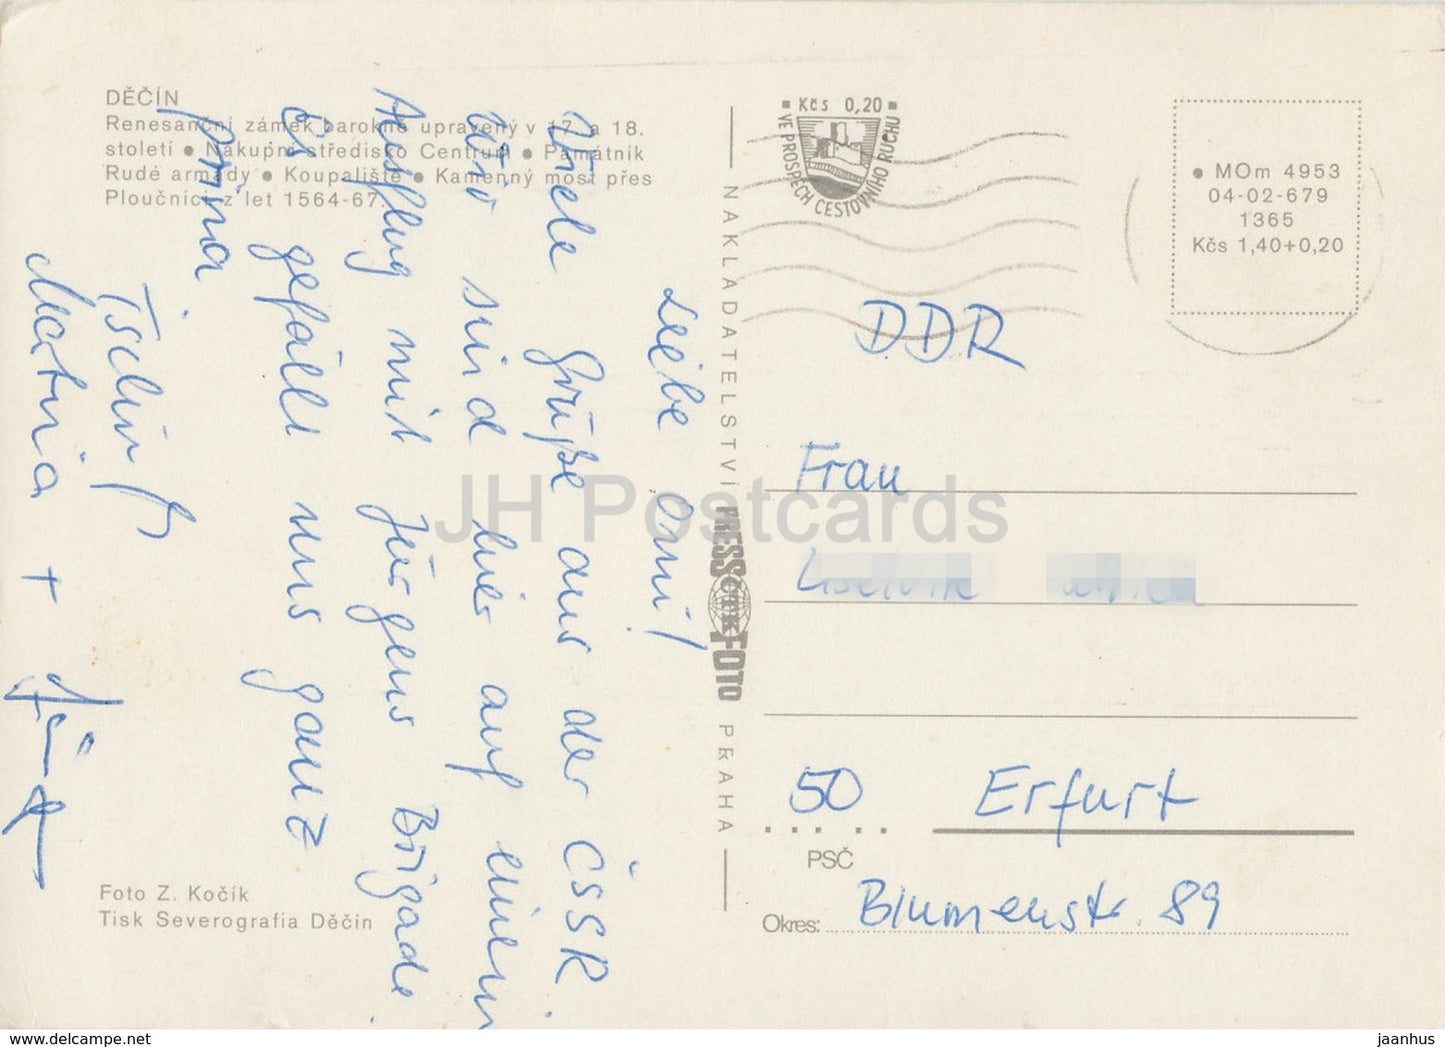 DĚČÍN
Renesanční zámek barokně upravený v 17. a 18.
století ● Nákupní středisko Centrum ● Památník
Rudé armády ● Koupaliště ● Kamenný most přes
Ploučnici z let 1564-67.
Liebe Omi!
Viele Grüße aus der ČSSR.
Wir sind hier auf einem
Ausflug mit Jürgens Brigade.
Es gefällt uns ganz
prima.
Tschüß
Martina + Jürgen
Foto Z. Kočík
Tisk Severografia Děčín
NAKLADATELSTVÍ PRESSFOTO PRAHA
ČTK
Kčs 0,20
VE PROSPĚCH CESTOVNÍHO RUCHU
● MOm 4953
04-02-679
1365
Kčs 1,40+0,20
DDR
Frau
50 Erfurt
PSČ
Okres: Blumenstr. 89
JH Postcards
www.delcampe.net
jaanhus